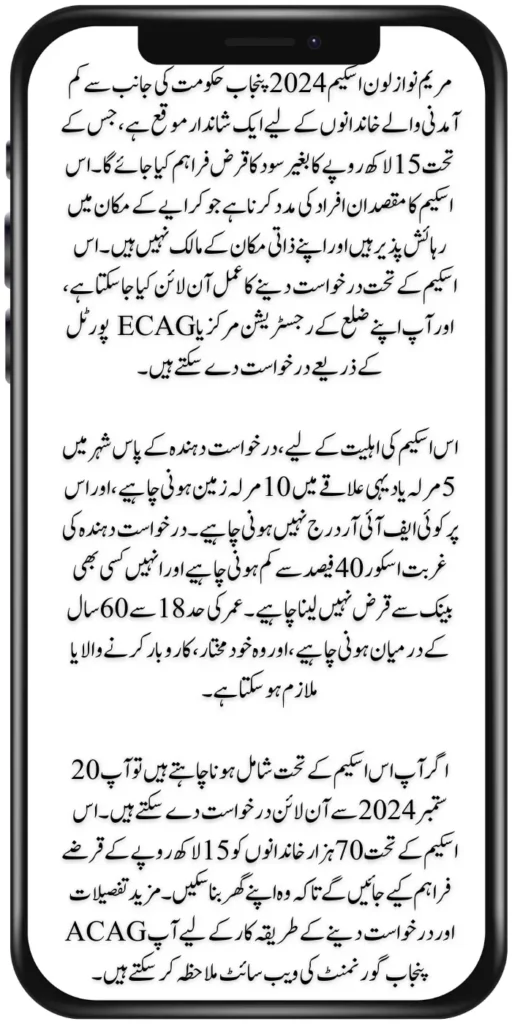 مریم نواز لون اسکیم 2024 پنجاب حکومت کی جانب سے کم
آمدنی والے خاندانوں کے لیے ایک شاندار موقع ہے، جس کے
تحت 15 لاکھ روپے کا بغیر سود کا قرض فراہم کیا جائے گا۔ اس
اسکیم کا مقصد ان افراد کی مدد کرنا ہے جو کرایے کے مکان میں
رہائش پذیر ہیں اور اپنے ذاتی مکان کے مالک نہیں ہیں۔ اس
اسکیم کے تحت درخواست دینے کا عمل آن لائن کیا جا سکتا ہے،
اور آپ اپنے ضلع کے رجسٹریشن مرکز یا ECAG پورٹل
کے ذریعے درخواست دے سکتے ہیں۔
اس اسکیم کی اہلیت کے لیے، درخواست دهندہ کے پاس شہر میں
5 مرلہ یا دیہی علاقے میں 10 مرلہ زمین ہونی چاہیے، اور اس
پر کوئی ایف آئی آر درج نہیں ہونی چاہیے۔ درخواست دهندہ کی
غربت اسکور 40 فیصد سے کم ہونی چاہیے اور انہیں کسی بھی
بینک سے قرض نہیں لینا چاہیے۔ عمر کی حد 18 سے 60 سال
کے درمیان ہونی چاہیے، اور وہ خود مختار، کاروبار کرنے والا یا
ملازم ہو سکتا ہے۔
اگر آپ اس اسکیم کے تحت شامل ہونا چاہتے ہیں تو آپ 20
ستمبر 2024 سے آن لائن درخواست دے سکتے ہیں۔ اس
اسکیم کے تحت 70 ہزار خاندانوں کو 15 لاکھ روپے کے قرضے
فراہم کیے جائیں گے تاکہ وہ اپنے گھر بنا سکیں۔ مزید تفصیلات
اور درخواست دینے کے طریقہ کار کے لیے آپ ACAG
پنجاب گورنمنٹ کی ویب سائٹ ملاحظہ کر سکتے ہیں۔